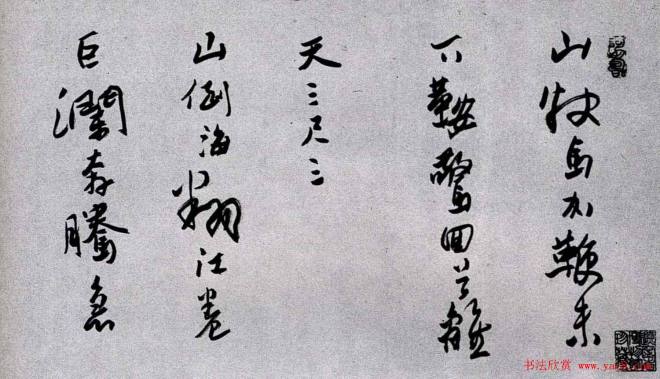 山快馬加鞭未
下鞍驚回首離
天三尺三
山倒海翻江卷
巨瀾奔騰急
书法欣赏